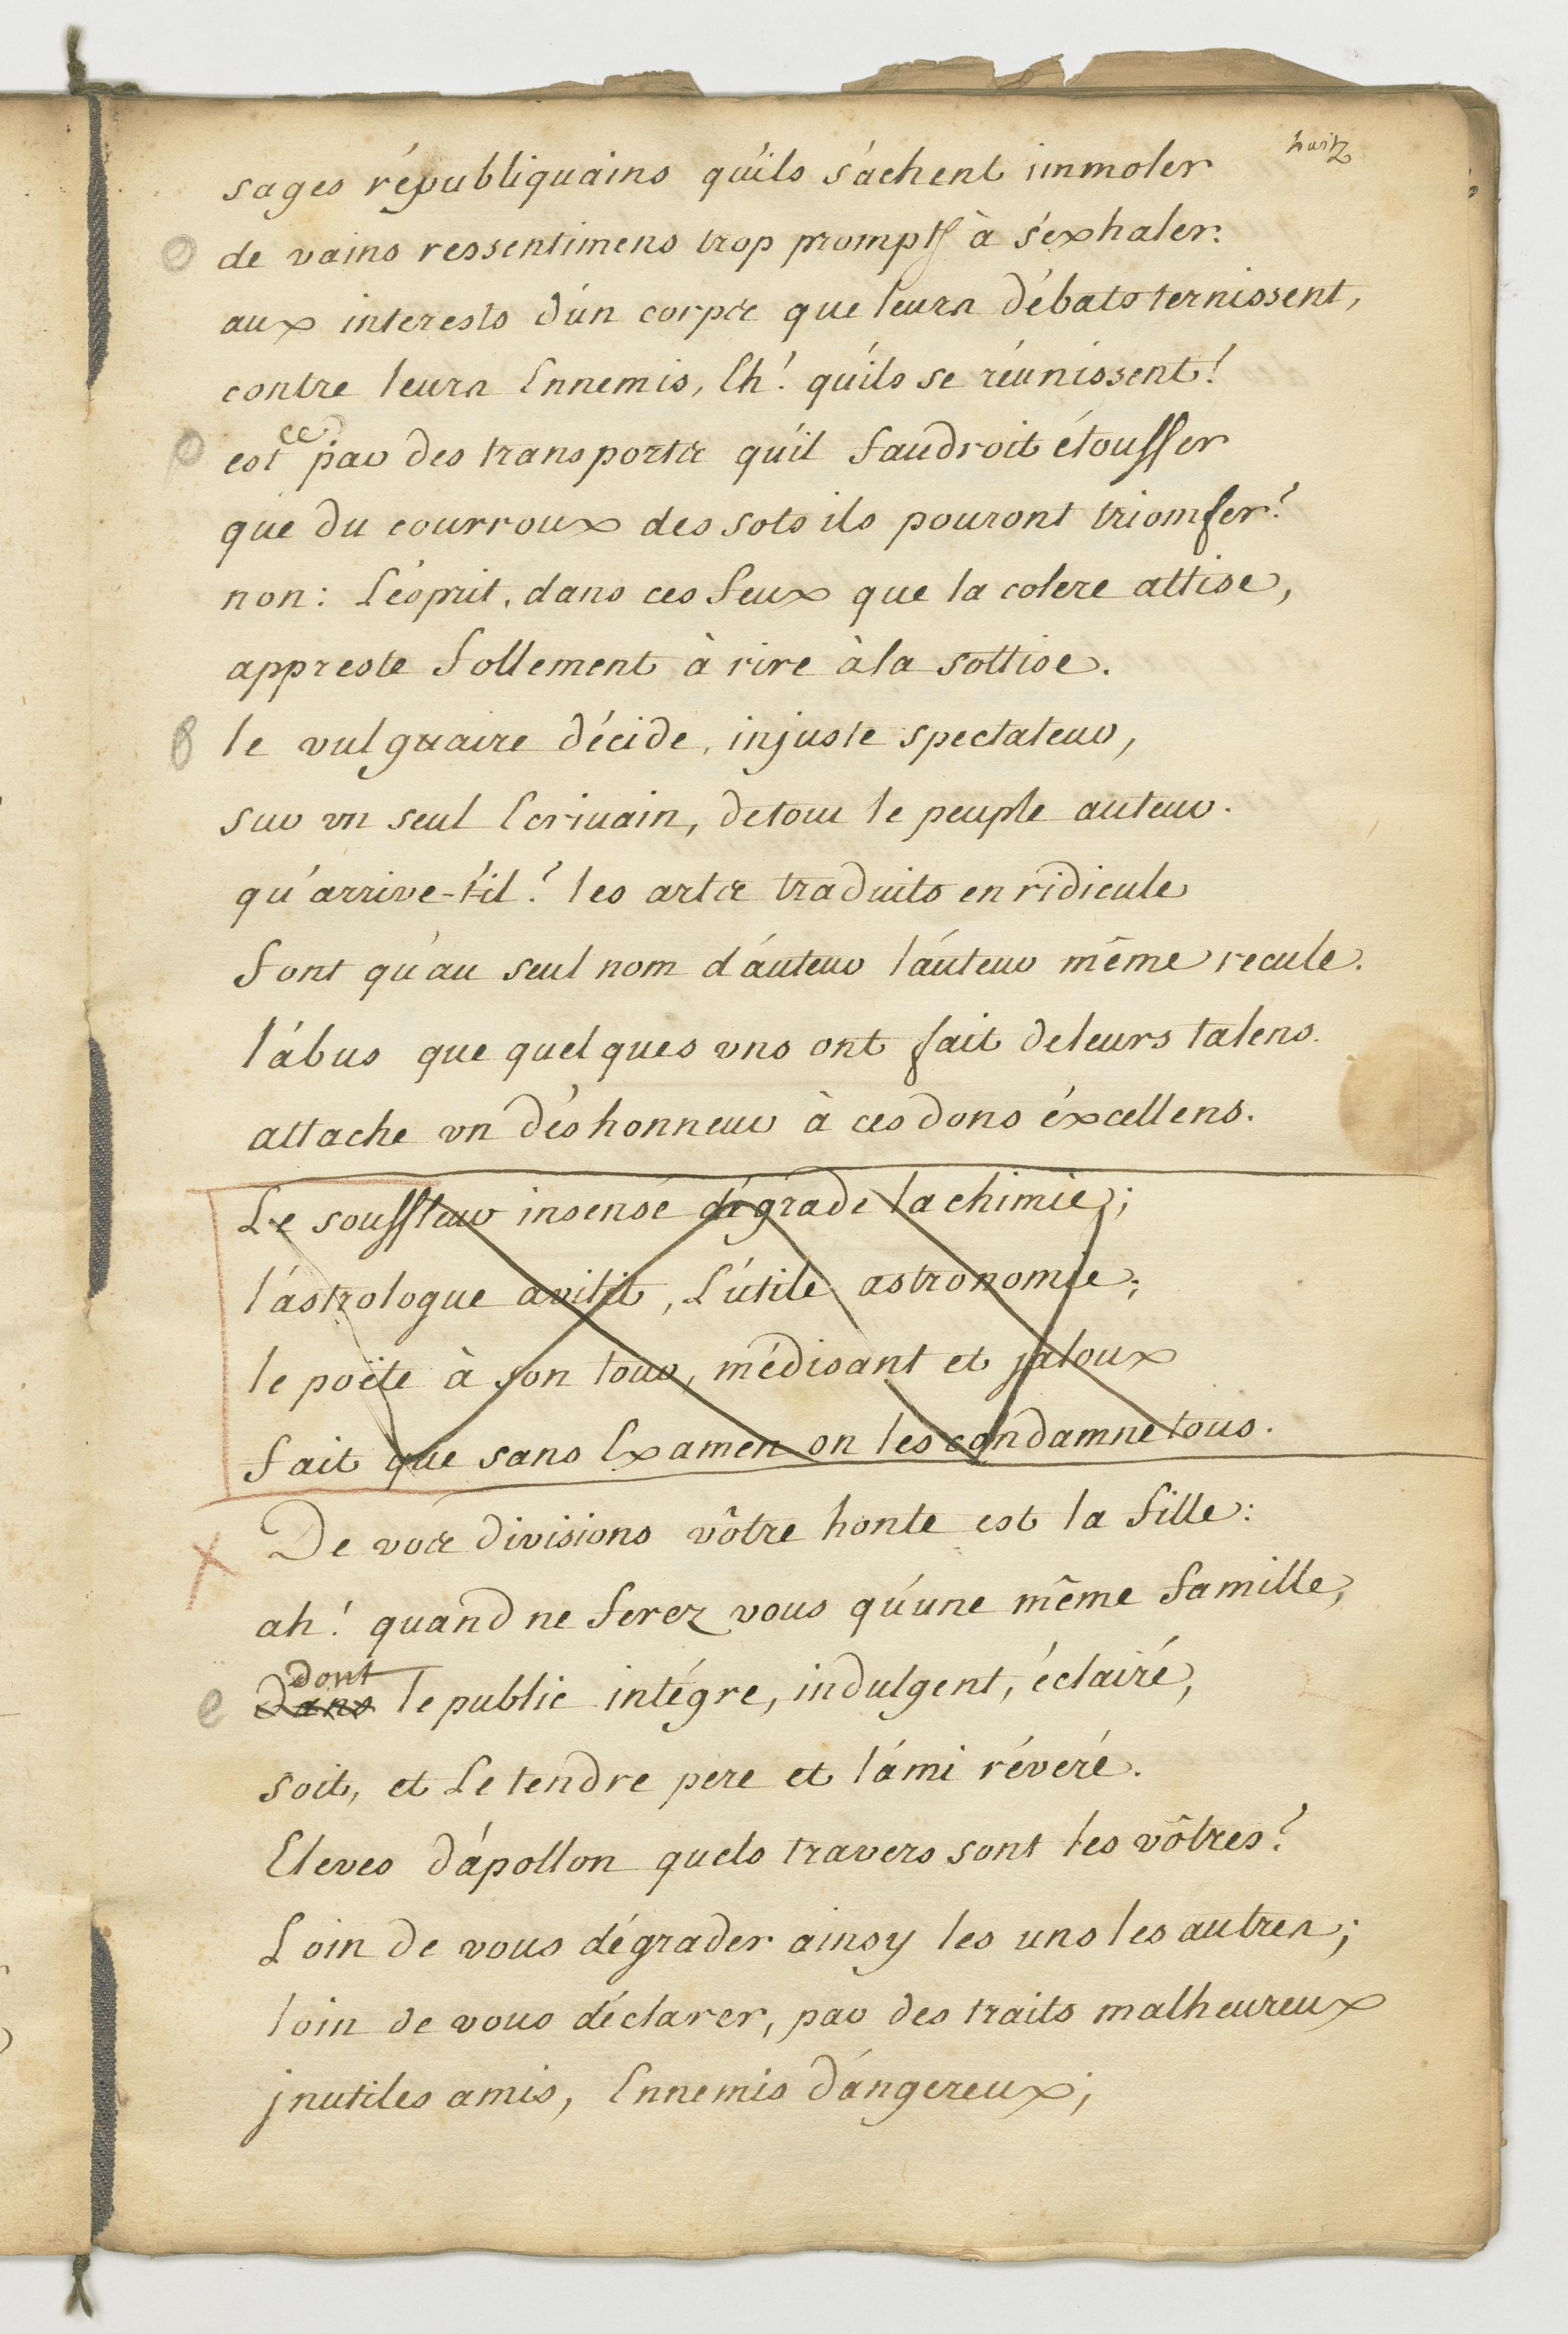 huit
sages républiquains qu'ils s'achent immoler
de vains ressentimens trop prompts à s'exhaler:
aux interests d'un corps que leurs débats ternissent,
contre leurs Ennemis, Eh! qu'ils se réunissent!
est ce par des transports qu'il faudroit étouffer
que du courroux des sots ils pouront triomfer?
non: L'esprit, dans ces feux que la colere attise,
appreste follement à rire à la sottise.
le vulguaire décide, injuste spectateur,
sur un seul Ecrivain, de tout le peuple auteur.
qu'arrive-t'il? les arts traduits en ridicule
font qu'au seul nom d'auteur l'auteur même recule.
l'abus que quelques uns ont fait de leurs talens
attache un déshonneur à ces dons éxcellens.
Le souffleur insensé dégrade la chimie;
l'astrologue avilit, L'utile astronomie;
le poëte à son tour, médisant et jaloux
fait que sans Examen on les condamne tous.
De vos divisions vôtre honte est la fille:
ah! quand ne ferez vous qu'une même famille,
dont
dans le public intégre, indulgent, éclairé,
soit, et Le tendre pere et l'ami réveré.
Eleves d'apollon quels travers sont les vôtres?
Loin de vous dégrader ainsy les uns les autres;
loin de vous déclarer, par des traits malheureux
jnutiles amis, Ennemis dangereux;